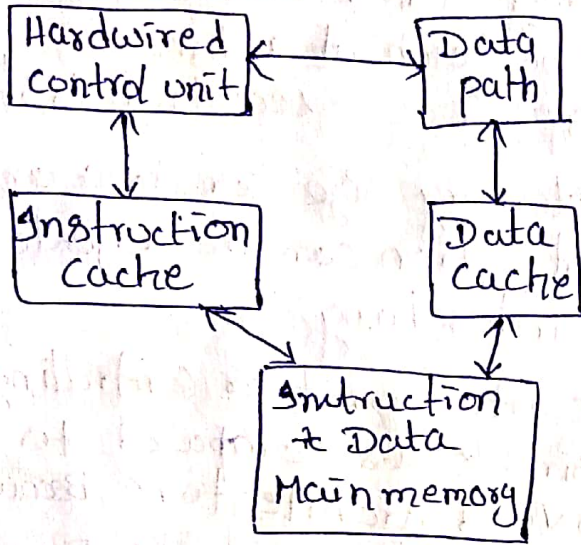 Hardwired
control unit
Data
path
Instruction
Cache
Data
cache
Instruction
& Data
Main memory